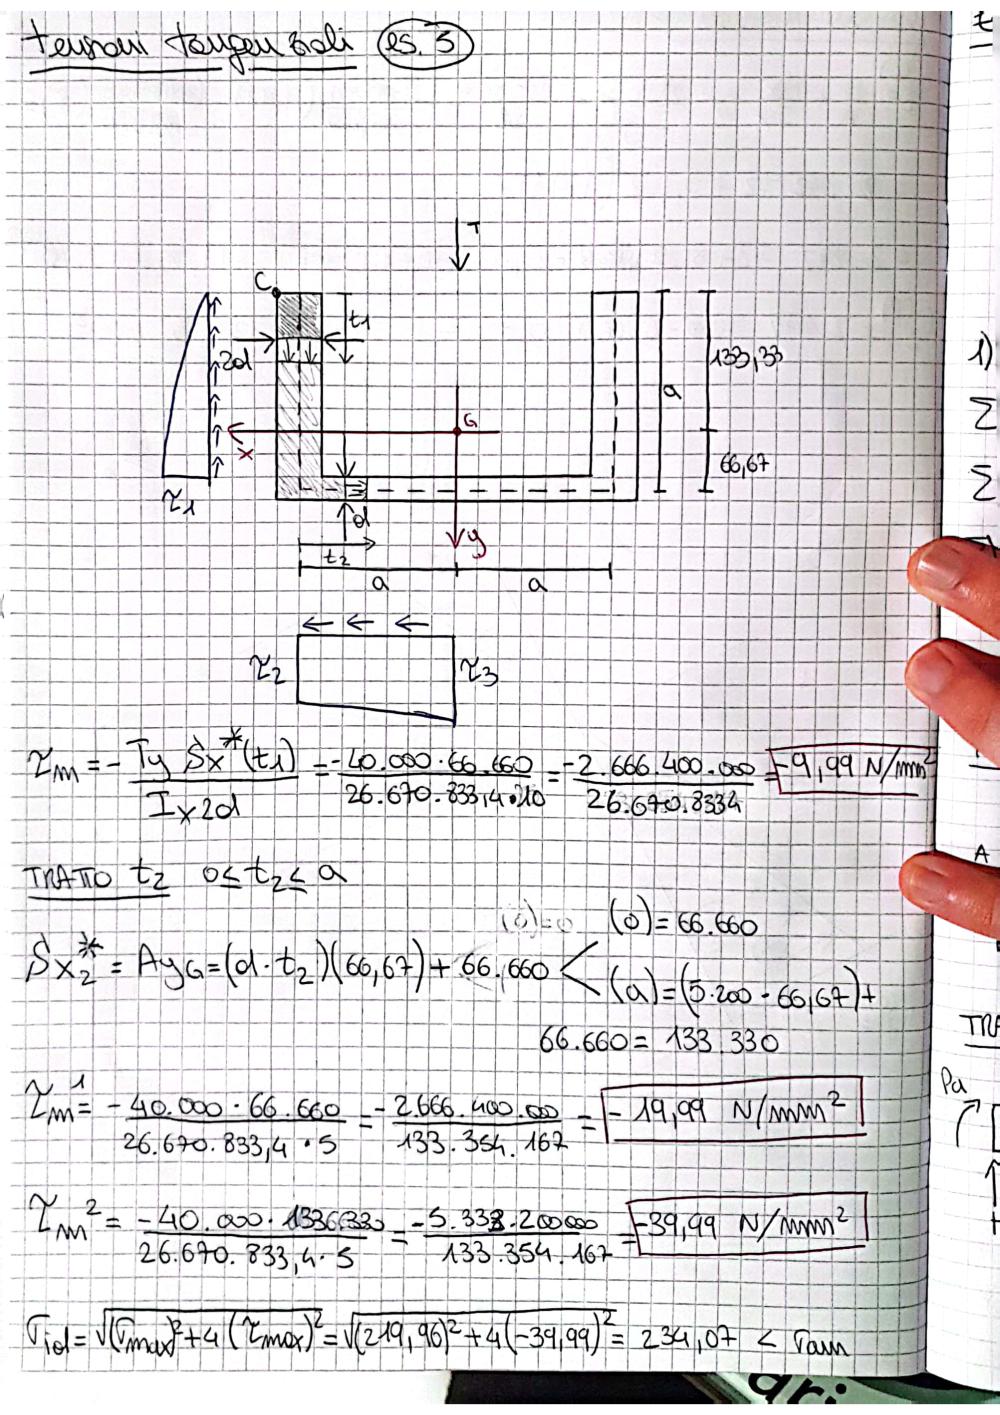 tensioni tangenziali es. 5
T
C
t1
2d
133,33
a
G
x
66,67
τ1
d
y
t2
a a
τ2 τ3
τm = - Ty Sx*(t1) / Ix 2d = -40.000·66.660 / 26.670.833,4·10 = -2.666.400.000 / 26.670.8334 = -9,99 N/mm²
TRATTO t2 0≤t2≤a
(0)=0 (0)=66.660
Sx2* = AyG = (d·t2)(66,67) + 66.660 < (a)=(5·200·66,67)+
66.660 = 133.330
τm¹ = -40.000·66.660 / 26.670.833,4·5 = -2.666.400.00 / 133.354.167 = -19,99 N/mm²
τm² = -40.000· / 26.670.833,4·5 = -5.333.200000 / 133.354.167 = -39,99 N/mm²
σid = √(σmax)²+4(τmax)² = √(219,96)²+4(-39,99)² = 234,07 < σam
1)
Σ
Σ
A
Pa